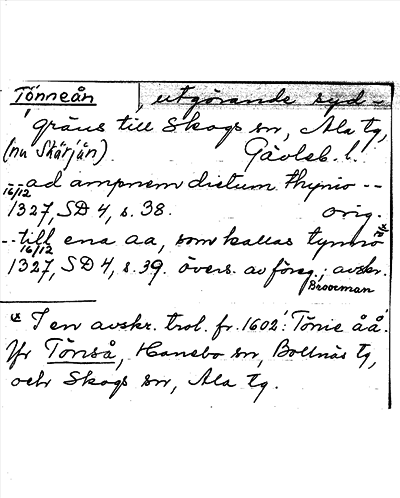 Tönneån, utgörande syd-
gräns till Skogs sn, Ala tg,
(nu Skärjån). Gävleb. l.
-- ad ampnem dictum thynio --
16/12 1327, SD 4, s. 38. orig.
-- till ena aa, som kallas tynnio x)
16/12 1327, SD 4, s. 39. övers. av föreg.; avskr.
Broocman
x I en avskr. trol. fr. 1602: Tönie åå.
Jfr Tönså, Hanebo sn, Bollnäs tg,
och Skogs sn, Ala tg.